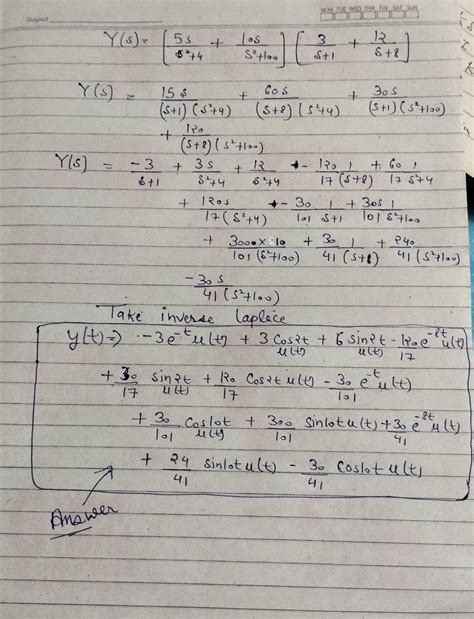 Subject
MON TUE WED THU FRI SAT SUN
Y(s) = [5s/s²+4 + 10s/s²+100] [3/s+1 + 12/s+8]
Y(s) = 15s/(s+1)(s²+4) + 60s/(s+8)(s²+4) + 30s/(s+1)(s²+100)
+ 120/(s+8)(s²+100)
Y(s) = -3/s+1 + 3s/s²+4 + 12/s²+4 - 120/17 1/(s+8) + 60/17 1/s²+4
+ 120s/17(s²+4) - 30/101 1/s+1 + 30s/101 1/s²+100
+ 3000×10/101(s²+100) + 30/41 1/(s+8) + 240/41(s²+100)
- 30s/41(s²+100)
Take inverse laplece
y(t) => -3e^-t u(t) + 3 cos2t u(t) + 6 sin2t u(t) - 120/17 e^-8t u(t)
+ 30/17 sin2t u(t) + 120/17 cos2t u(t) - 30/101 e^-t u(t)
+ 30/101 cos10t u(t) + 300/101 sin10t u(t) + 30/41 e^-8t u(t)
+ 24/41 sin10t u(t) - 30/41 cos10t u(t)
Answer